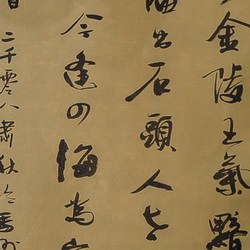 金陵王氣黯
幡出石頭人世
今逢四海為家
二千零八肅秋